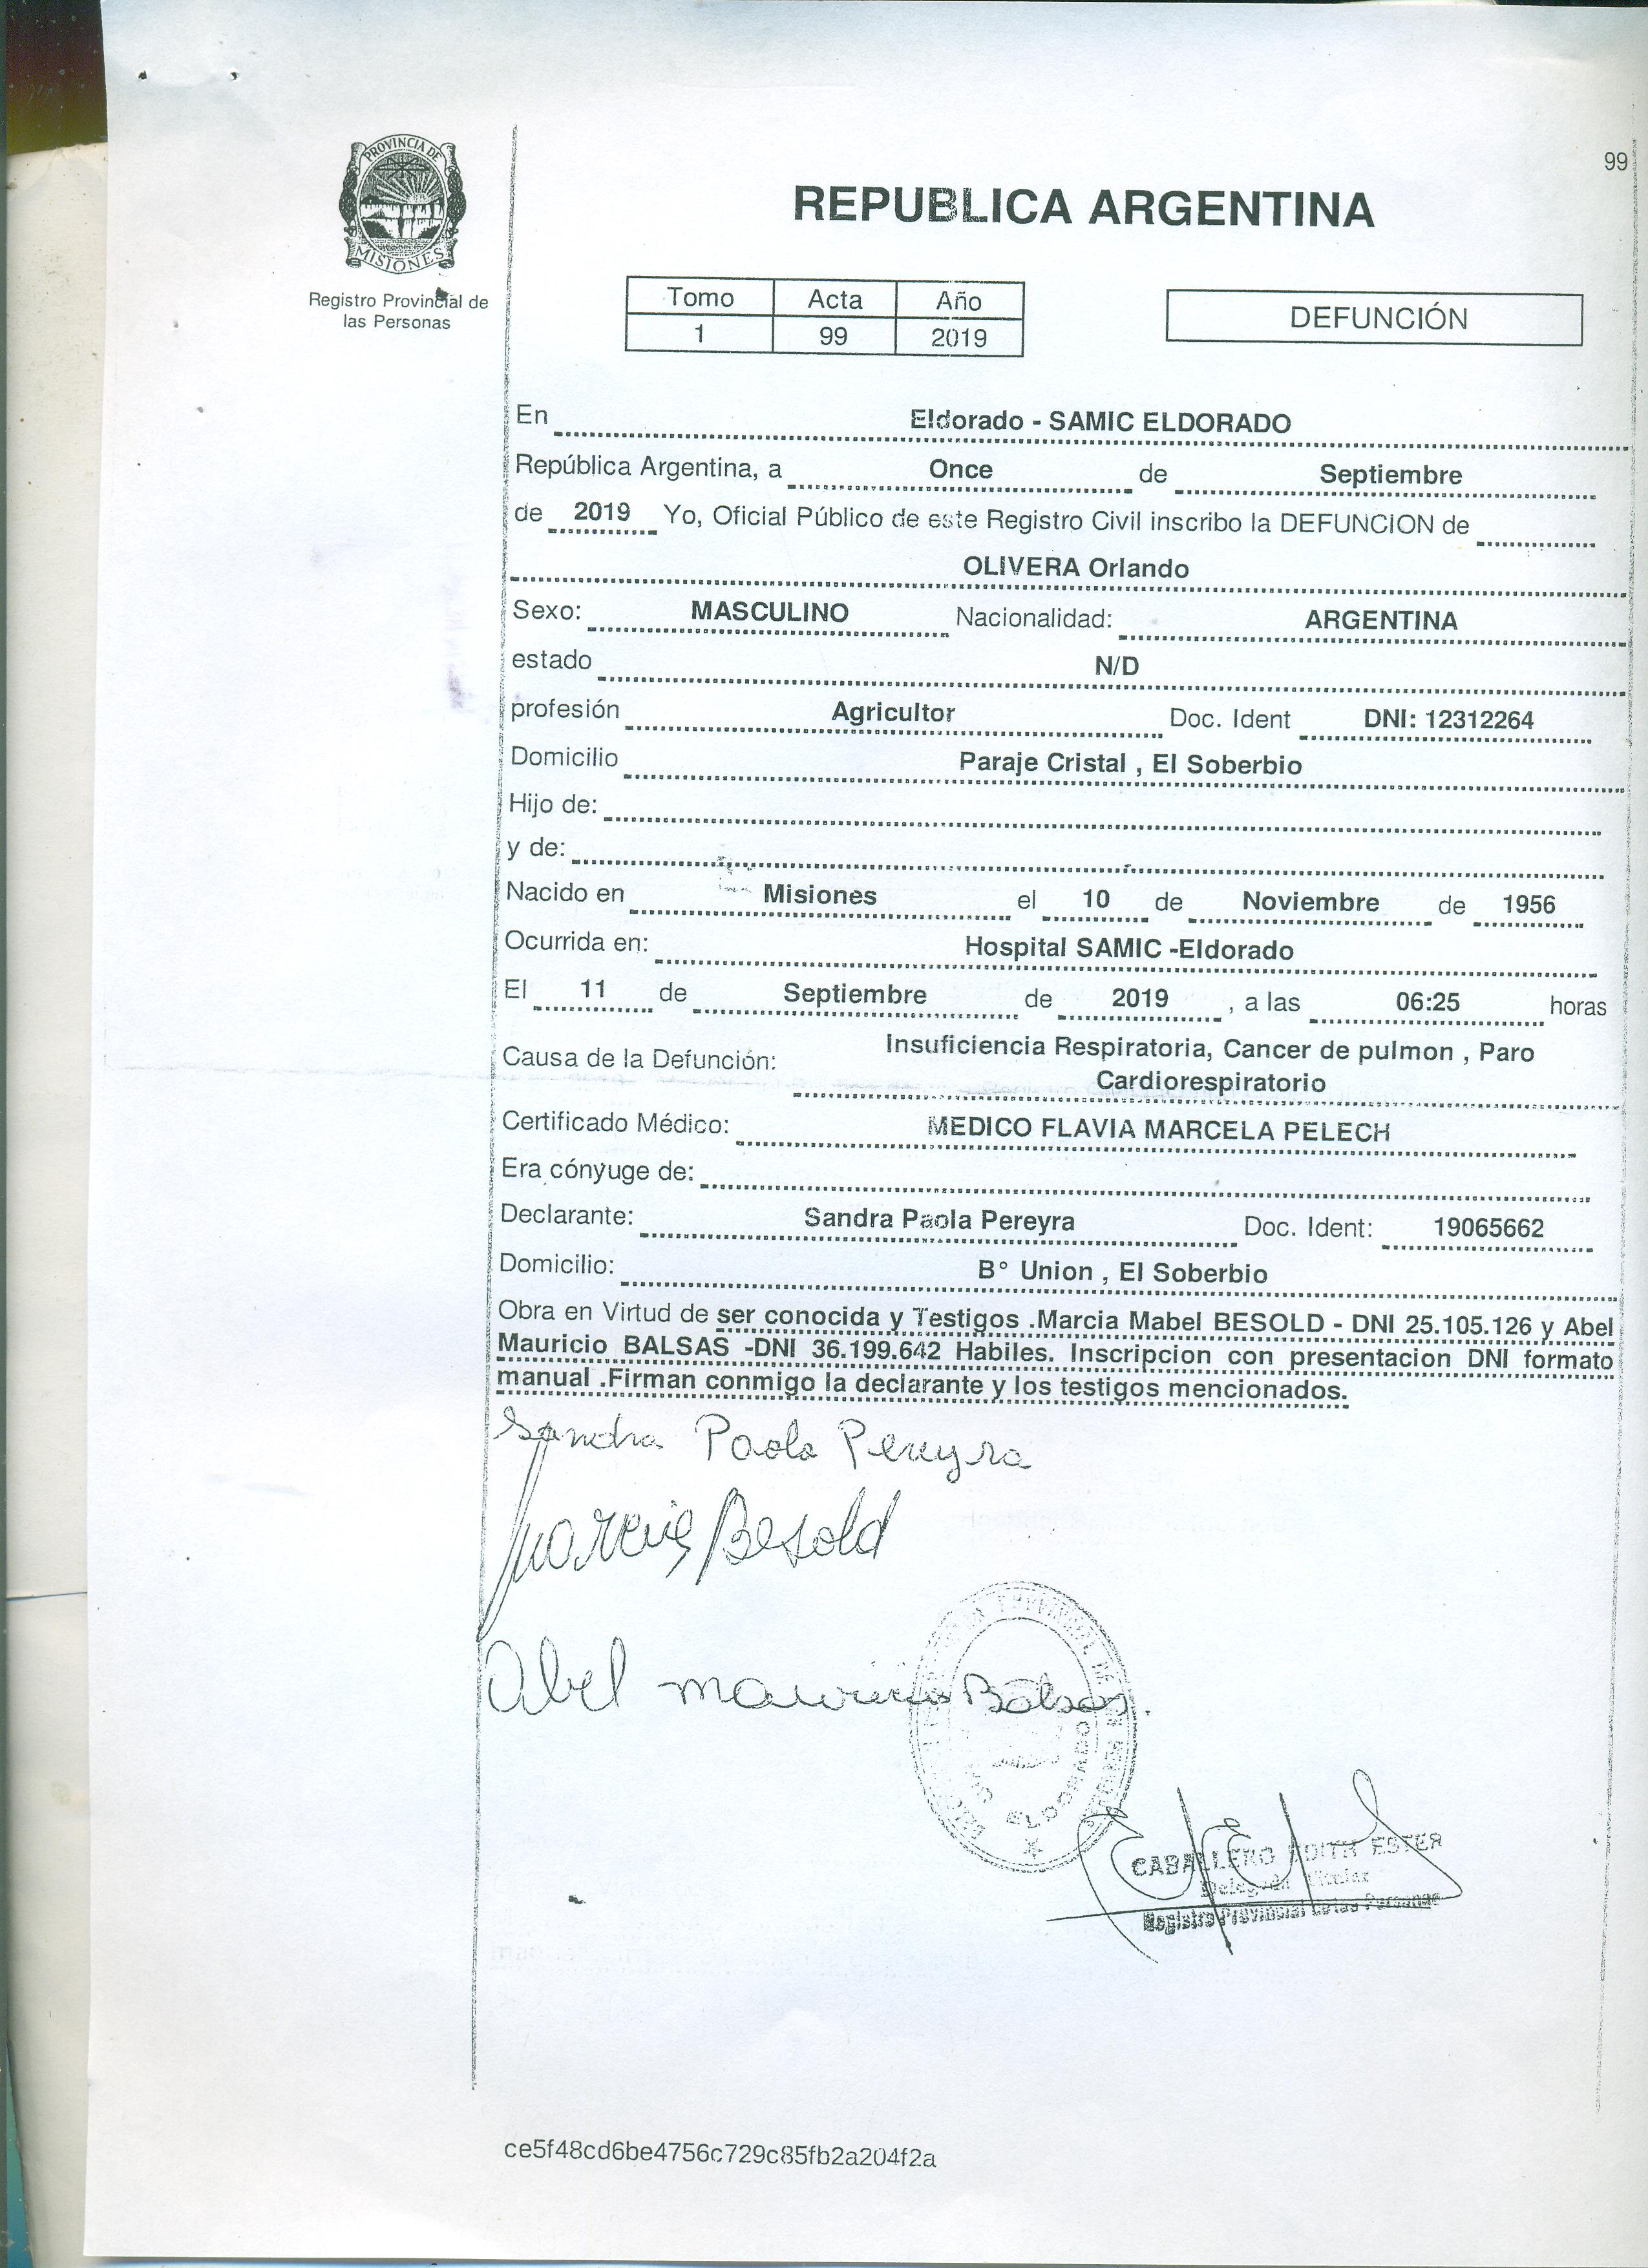 99
PROVINCIA DE
MISIONES
Registro Provincial de
las Personas
REPUBLICA ARGENTINA
Tomo Acta Año
1 99 2019
DEFUNCIÓN
En Eldorado - SAMIC ELDORADO
República Argentina, a Once de Septiembre
de 2019 Yo, Oficial Público de este Registro Civil inscribo la DEFUNCION de
OLIVERA Orlando
Sexo: MASCULINO Nacionalidad: ARGENTINA
estado N/D
profesión Agricultor Doc. Ident DNI: 12312264
Domicilio Paraje Cristal , El Soberbio
Hijo de:
y de:
Nacido en Misiones el 10 de Noviembre de 1956
Ocurrida en: Hospital SAMIC -Eldorado
El 11 de Septiembre de 2019 , a las 06:25 horas
Causa de la Defunción: Insuficiencia Respiratoria, Cancer de pulmon , Paro
Cardiorespiratorio
Certificado Médico: MEDICO FLAVIA MARCELA PELECH
Era cónyuge de:
Declarante: Sandra Paola Pereyra Doc. Ident: 19065662
Domicilio: B° Union , El Soberbio
Obra en Virtud de ser conocida y Testigos .Marcia Mabel BESOLD - DNI 25.105.126 y Abel
Mauricio BALSAS -DNI 36.199.642 Habiles. Inscripcion con presentacion DNI formato
manual .Firman conmigo la declarante y los testigos mencionados.
Sandra Paola Pereyra
Marcia Besold
Abel Mauricio Balsas.
PROVINCIAL DE
ELDORADO
CABALLERO EDITH ESTER
Delegada Titular
Registro Provincial de las Personas
ce5f48cd6be4756c729c85fb2a204f2a